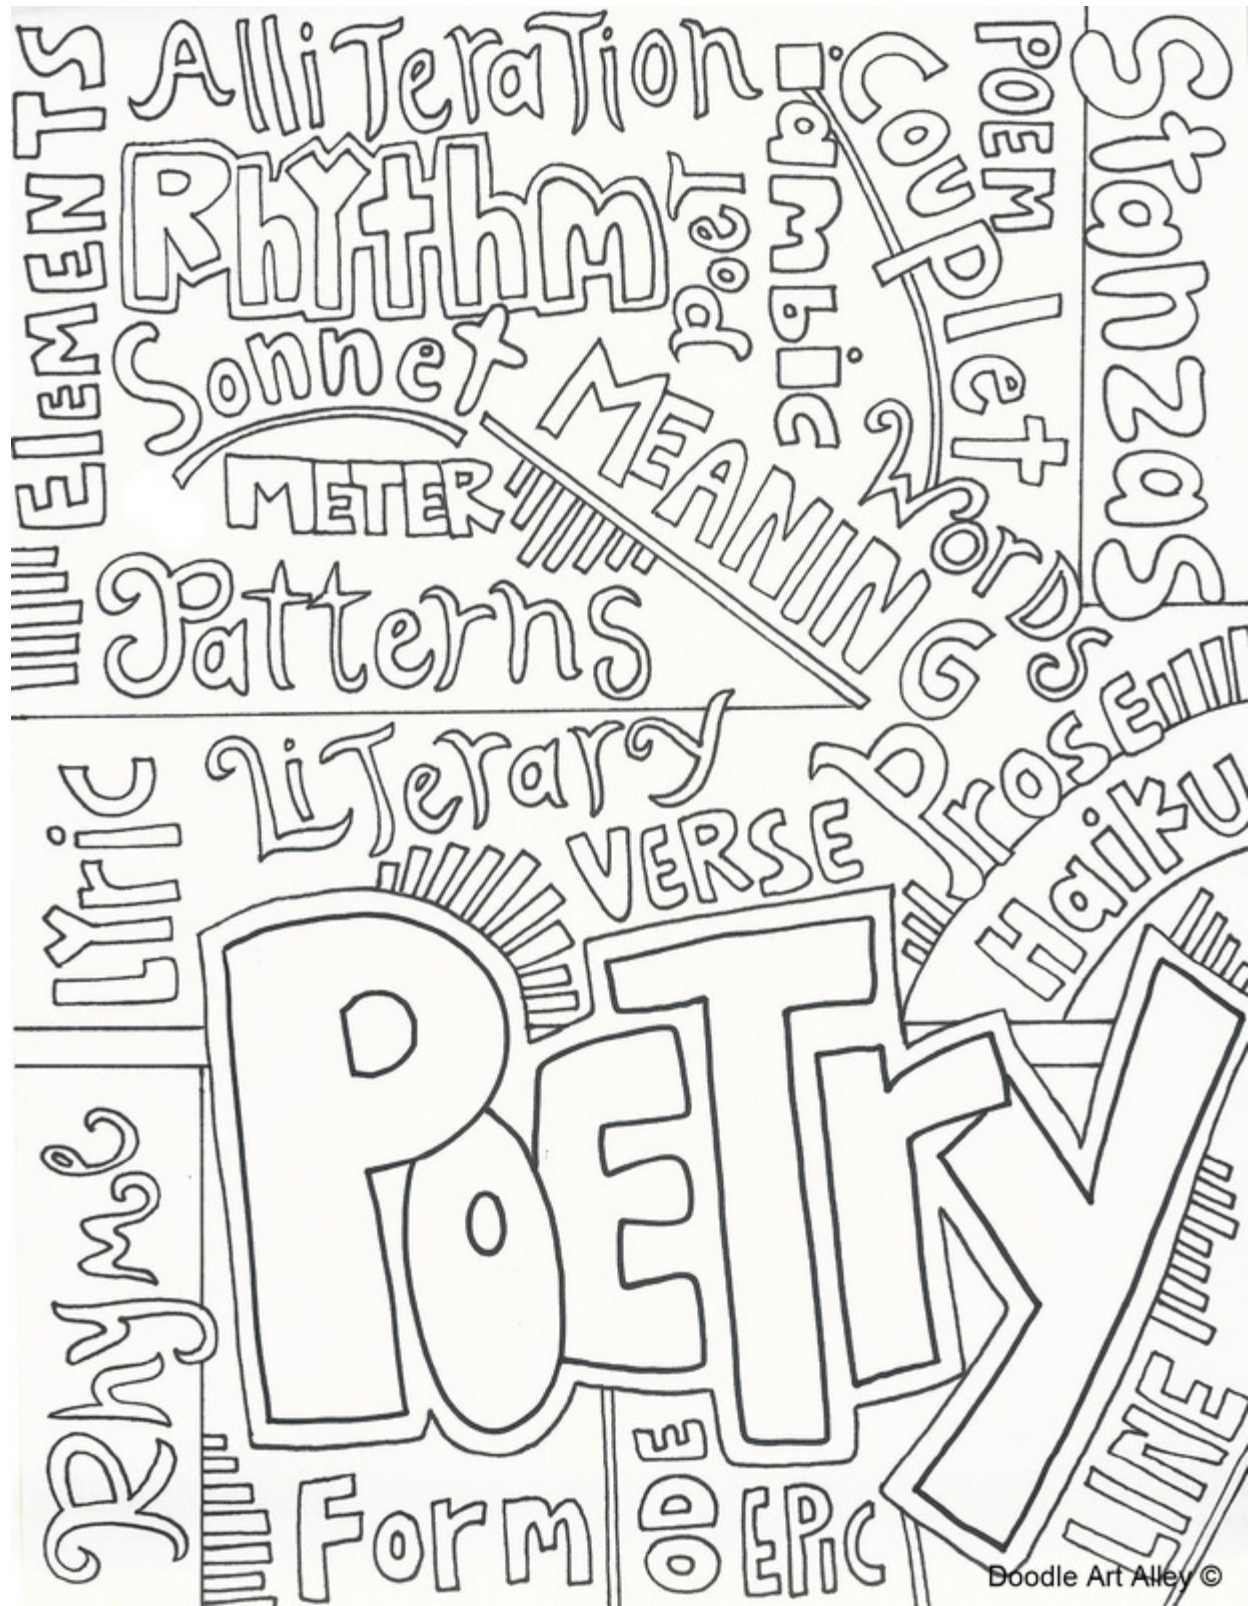 ElEMENTS
AlliTeraTion
Rhythm
Sonnet
METER
Patterns
PoeT
iambic
Couplet
POEM
Stanzas
MEANING
Words
LiTerary
VERSE
Prose
Haiku
LYric
POETrY
Rhyme
Form
ODE
EPiC
LINE
Doodle Art Alley ©